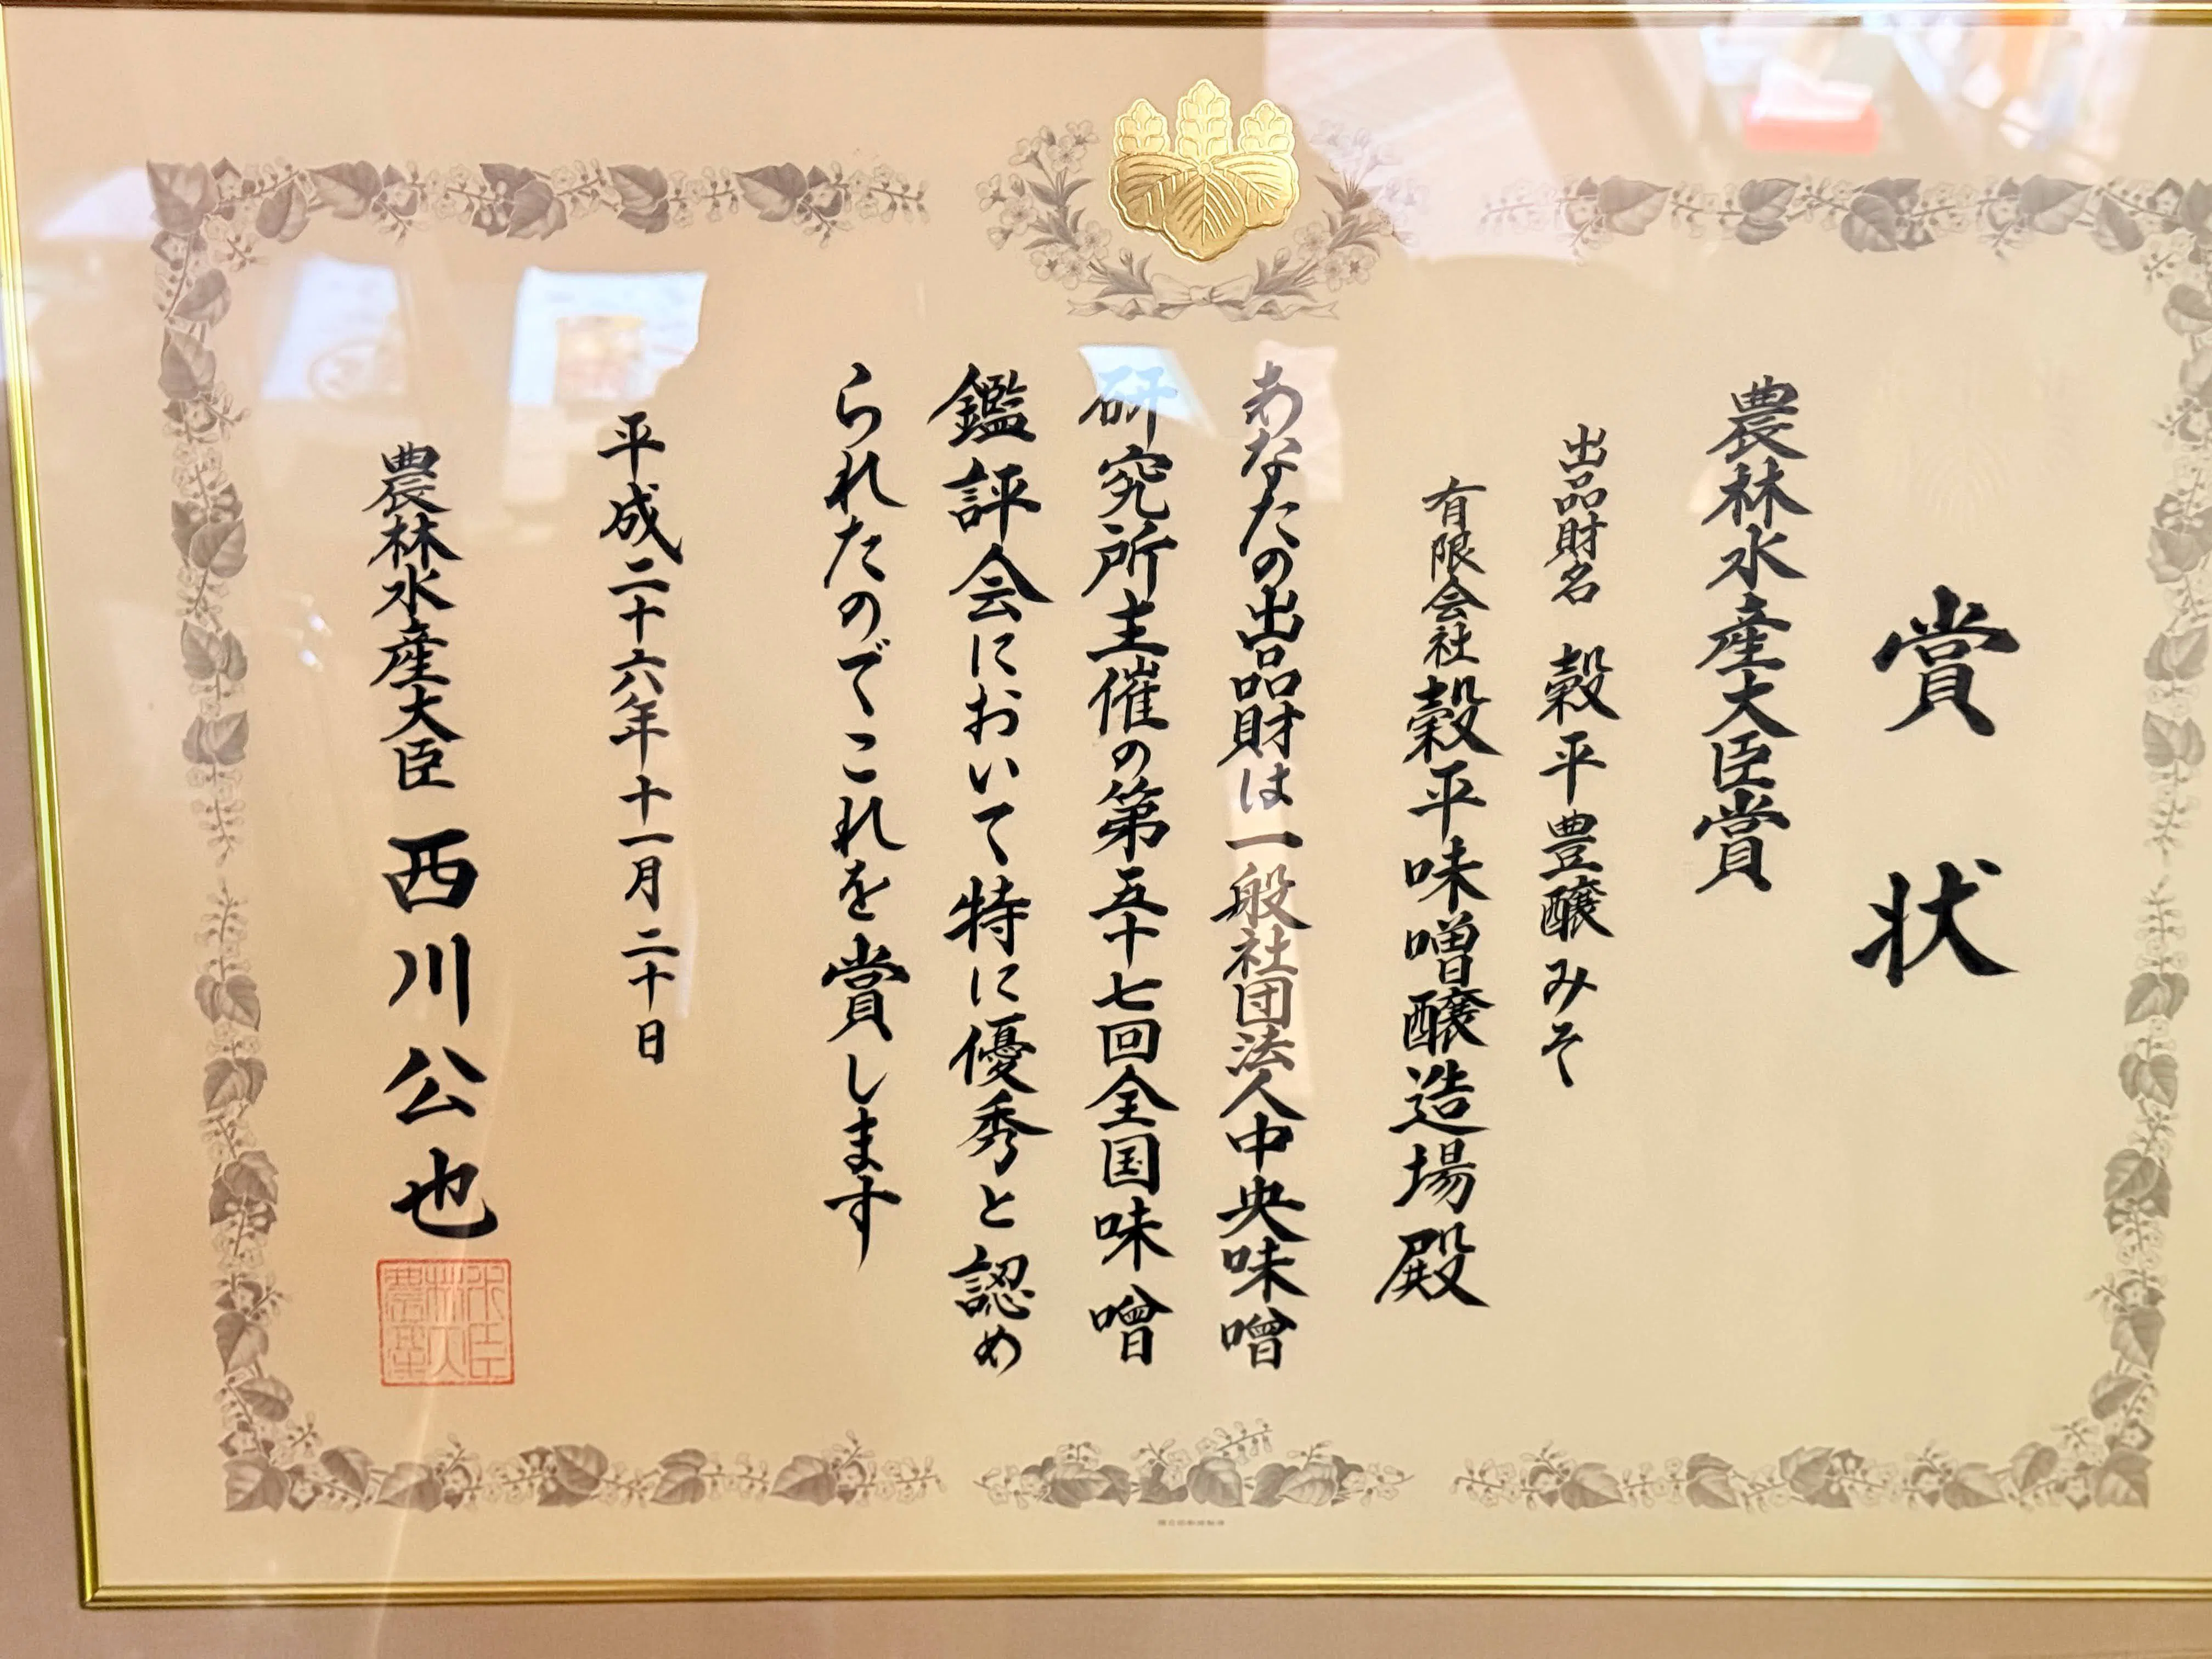 賞状
農林水産大臣賞
出品財名 穀平豊醸みそ
有限会社穀平味噌醸造場殿
あなたの出品財は一般社団法人中央味噌
研究所主催の第五十七回全国味噌
鑑評会において特に優秀と認め
られたのでこれを賞します
平成二十六年十一月二十日
農林水産大臣 西川公也